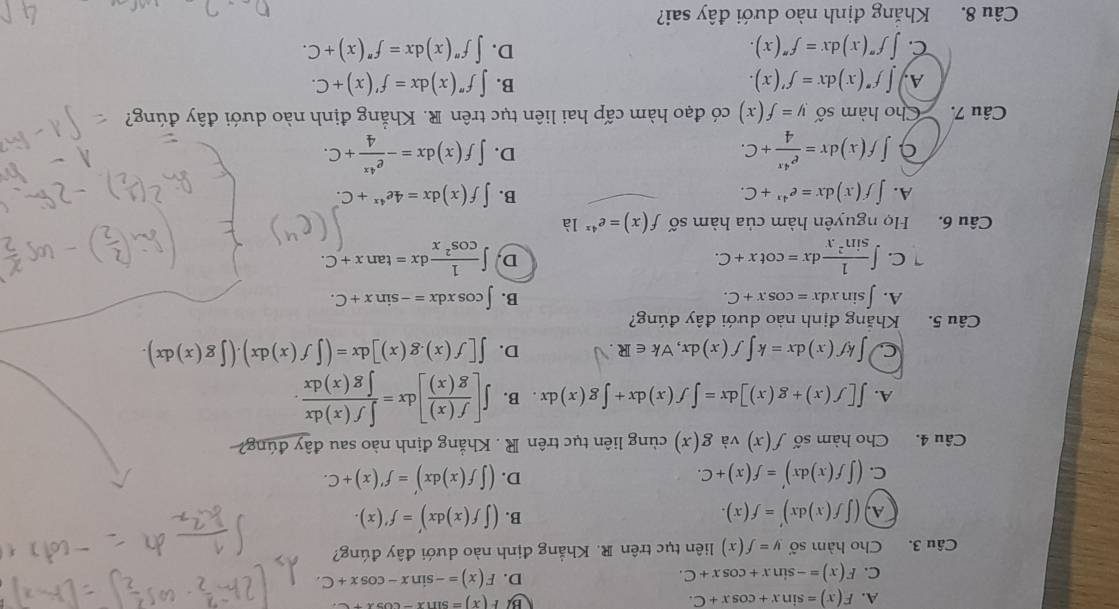 A. F(x) = sin x + cos x + C.
B. F(x) = sin x − cos x + C.
C. F(x) = −sin x + cos x + C.
D. F(x) = −sin x − cos x + C.
Câu 3. Cho hàm số y = f(x) liên tục trên ℝ. Khẳng định nào dưới đây đúng?
A. (∫f(x)dx)' = f(x).
B. (∫f(x)dx)' = f'(x).
C. (∫f(x)dx)' = f(x) + C.
D. (∫f(x)dx)' = f'(x) + C.
Câu 4. Cho hàm số f(x) và g(x) cùng liên tục trên ℝ. Khẳng định nào sau đây đúng?
A. ∫[f(x) + g(x)]dx = ∫f(x)dx + ∫g(x)dx. B. ∫[f(x)/g(x)]dx = ∫f(x)dx / ∫g(x)dx.
C. ∫kf(x)dx = k∫f(x)dx, ∀k ∈ ℝ.
D. ∫[f(x).g(x)]dx = (∫f(x)dx).(∫g(x)dx).
Câu 5. Khẳng định nào dưới đây đúng?
A. ∫sin xdx = cos x + C.
B. ∫cos xdx = −sin x + C.
C. ∫1/sin²x dx = cot x + C.
D. ∫1/cos²x dx = tan x + C.
Câu 6. Họ nguyên hàm của hàm số f(x) = e⁴ˣ là
A. ∫f(x)dx = e⁴ˣ + C.
B. ∫f(x)dx = 4e⁴ˣ + C.
C. ∫f(x)dx = e⁴ˣ/4 + C.
D. ∫f(x)dx = −e⁴ˣ/4 + C.
Câu 7. Cho hàm số y = f(x) có đạo hàm cấp hai liên tục trên ℝ. Khẳng định nào dưới đây đúng?
A. ∫f"(x)dx = f'(x).
B. ∫f"(x)dx = f'(x) + C.
C. ∫f"(x)dx = f"(x).
D. ∫f"(x)dx = f"(x) + C.
Câu 8. Khẳng định nào dưới đây sai?